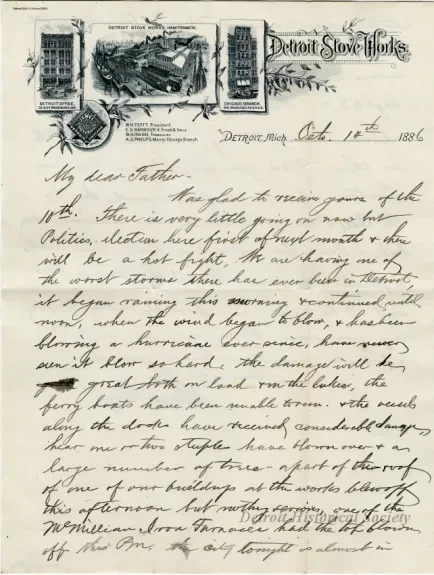 DETROIT STOVE WORKS, HAMTRAMCK.
Detroit Stove Works.
DETROIT OFFICE
CHICAGO BRANCH
W.H. TEFFT, President.
E.S. BARBOUR, V. Prest & Secy.
Treasurer
A.G. PHELPS, Manager Chicago Branch.
DETROIT, Mich. Oct. 14th 1886
My dear Father-
Was glad to receive yours of the
10th. There is very little going on now but
Politics, election here first of next month & there
will be a hot fight, We are having one of
the worst storms there has ever been in Detroit,
it began raining this morning & continued until
noon, when the wind began to blow, & has been
blowing a hurricane ever since, have never
seen it blow so hard, the damage will be
great both on land & on the lakes, the
ferry boats have been unable to run & the vessels
along the dock have received considerable damage,
hear one or two steeples have blown over & a
large number of trees - a part of the roof
of one of our buildings at the works blew off
this afternoon but nothing serious, one of the
McMillian Iron Furnaces had the top blown
off this Pm. the city tonight is almost in
Detroit Historical Society